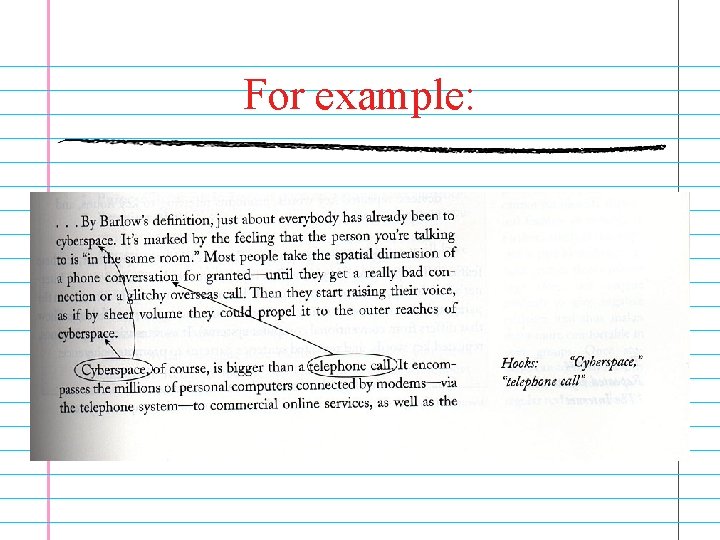 For example:
. . . By Barlow's definition, just about everybody has already been to
cyberspace. It's marked by the feeling that the person you're talking
to is "in the same room." Most people take the spatial dimension of
a phone conversation for granted—until they get a really bad con-
nection or a glitchy overseas call. Then they start raising their voice,
as if by sheer volume they could propel it to the outer reaches of
cyberspace.
Cyberspace, of course, is bigger than a telephone call. It encom-
passes the millions of personal computers connected by modems—via
the telephone system—to commercial online services, as well as the
Hooks: "Cyberspace,"
"telephone call"